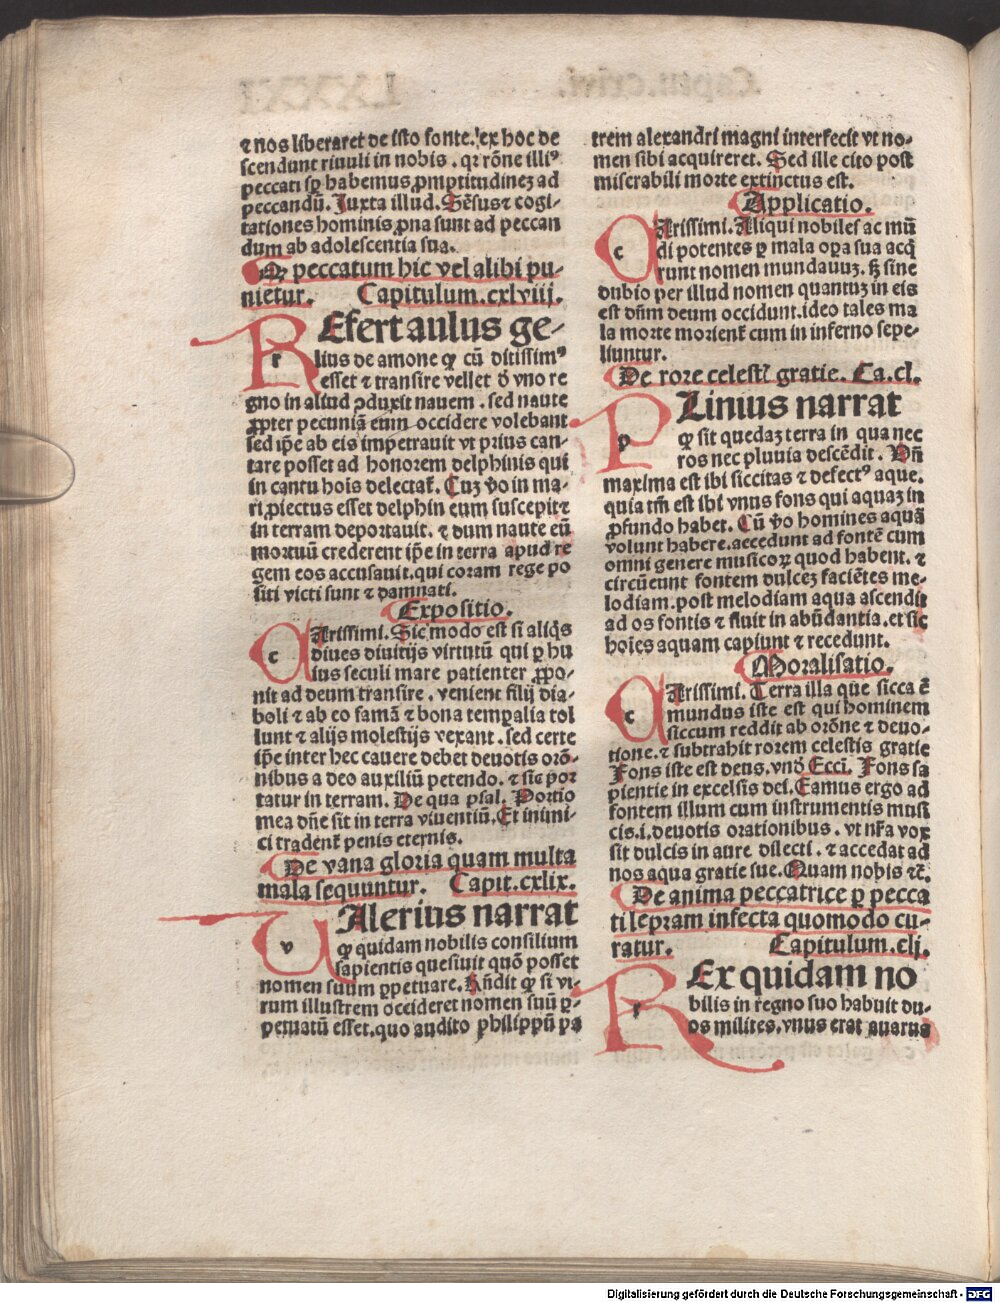 ⁊ nos liberaret de isto fonte. ex hoc de
scendunt riuuli in nobis . qꝛ rōne illiꝰ
peccati sꝑ habemus ꝓmptitudinez ad
peccandū. Juxta illud. Sēsus ⁊ cogi-
tationes hominis ꝓna sunt ad peccan
dum ab adolescentia sua.
Qꝙ peccatum hic vel alibi pu-
nietur. Capitulum.cxlviij.
REfert aulus ge-
lius de amone ꝙ cū ditissimꝰ
esset ⁊ transire vellet ď vno re
gno in aliud ꝓduxit nauem . sed naute
ꝓpter pecuniā eum occidere volebant
sed ip̄e ab eis impetrauit vt prius can-
tare posset ad honorem delphinis qui
in cantu hois delectat̄. Cuz ꝟo in ma-
ri ꝓiectus esset delphin eum suscepit ⁊
in terram deportauit. ⁊ dum naute eū
mortuū crederent ip̄e in terra apud re
gem eos accusauit.qui coram rege po
siti victi sunt ⁊ damnati.
Expositio.
CArissimi. Sic modo est si aliq̄s
diues diuitijs virtutū qui ꝑ hu
ius seculi mare patienter ꝓpo-
nit ad deum transire . venient filij dia-
boli ⁊ ab eo famā ⁊ bona temꝑalia tol
lunt ⁊ alijs molestijs vexant . sed certe
ip̄e inter hec cauere debet deuotis orō-
nibus a deo auxiliū petendo. ⁊ sic por
tatur in terram. De qua psal. Portio
mea dn̄e sit in terra viuentiū. Et inimi-
ci tradent̄ penis eternis.
De vana gloria quam multa
mala sequuntur. Capit.cxlix.
VAlerius narrat
ꝙ quidam nobilis consilium
sapientis quesiuit quō posset
nomen suum ꝑpetuare. Rn̄dit ꝙ si vi-
rum illustrem occideret nomen suū ꝑ-
petuatū esset.quo audito philippū pa
trem alexandri magni interfecit vt no-
men sibi acquireret. Sed ille cito post
miserabili morte extinctus est.
Applicatio.
CArissimi. Aliqui nobiles ac mū
di potentes ꝑ mala oꝑa sua acq̄
runt nomen mundauuz. sꝫ sine
dubio per illud nomen quantuz in eis
est dn̄m deum occidunt.ideo tales ma
la morte morient̄ cum in inferno sepe-
liuntur.
De rore celesti gratie. Ca.cl.
PLinius narrat
ꝙ sit quedaz terra in qua nec
ros nec pluuia descēdit . Vn̄
maxima est ibi siccitas ⁊ defectꝰ aque.
quia tm̄ est ibi vnus fons qui aquaz in
ꝓfundo habet. Cū ꝟo homines aquā
volunt habere.accedunt ad fontē cum
omni genere musicoꝝ quod habent. ⁊
circūeunt fontem dulcez faciētes me-
lodiam.post melodiam aqua ascendit
ad os fontis ⁊ fluit in abūdantia.et sic
hoīes aquam capiunt ⁊ recedunt.
Moralisatio.
CArissimi. Terra illa que sicca ē
mundus iste est qui hominem
siccum reddit ab orōne ⁊ deuo-
tione.⁊ subtrahit rorem celestis gratie
Fons iste est deus.vnō Ecci. Fons sa
pientie in excelsis dei. Eamus ergo ad
fontem illum cum instrumentis musi
cis.i.deuotis orationibus . vt nr̄a vox
sit dulcis in aure dilecti . ⁊ accedat ad
nos aqua gratie sue. Quam nobis ⁊c̄.
De anima peccatrice ꝑ pecca
ti lepram infecta quomodo cu-
ratur. Capitulum.clj.
REx quidam no
bilis in regno suo habuit du-
os milites.vnus erat auarus
Digitalisierung gefördert durch die Deutsche Forschungsgemeinschaft - DFG